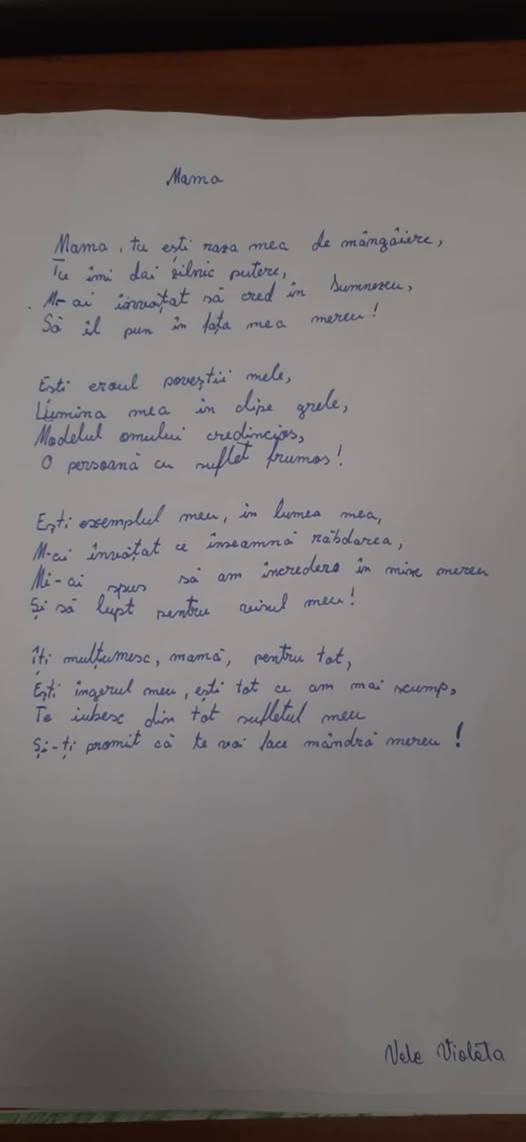 Mama
Mama, tu ești raza mea de mângâiere,
Tu îmi dai zilnic putere,
M-ai învățat să cred în Dumnezeu,
Să îl pun în fața mea mereu!
Ești eroul poveștii mele,
Lumina mea în clipe grele,
Modelul omului credincios,
O persoană cu suflet frumos!
Ești exemplul meu, în lumea mea,
M-ai învățat ce înseamnă răbdarea,
Mi-ai spus să am încredere în mine mereu
Și să lupt pentru visul meu!
Îți mulțumesc, mamă, pentru tot,
Ești îngerul meu, ești tot ce am mai scump,
Te iubesc din tot sufletul meu
Și-ți promit că te voi face mândră mereu!
Vele Violeta